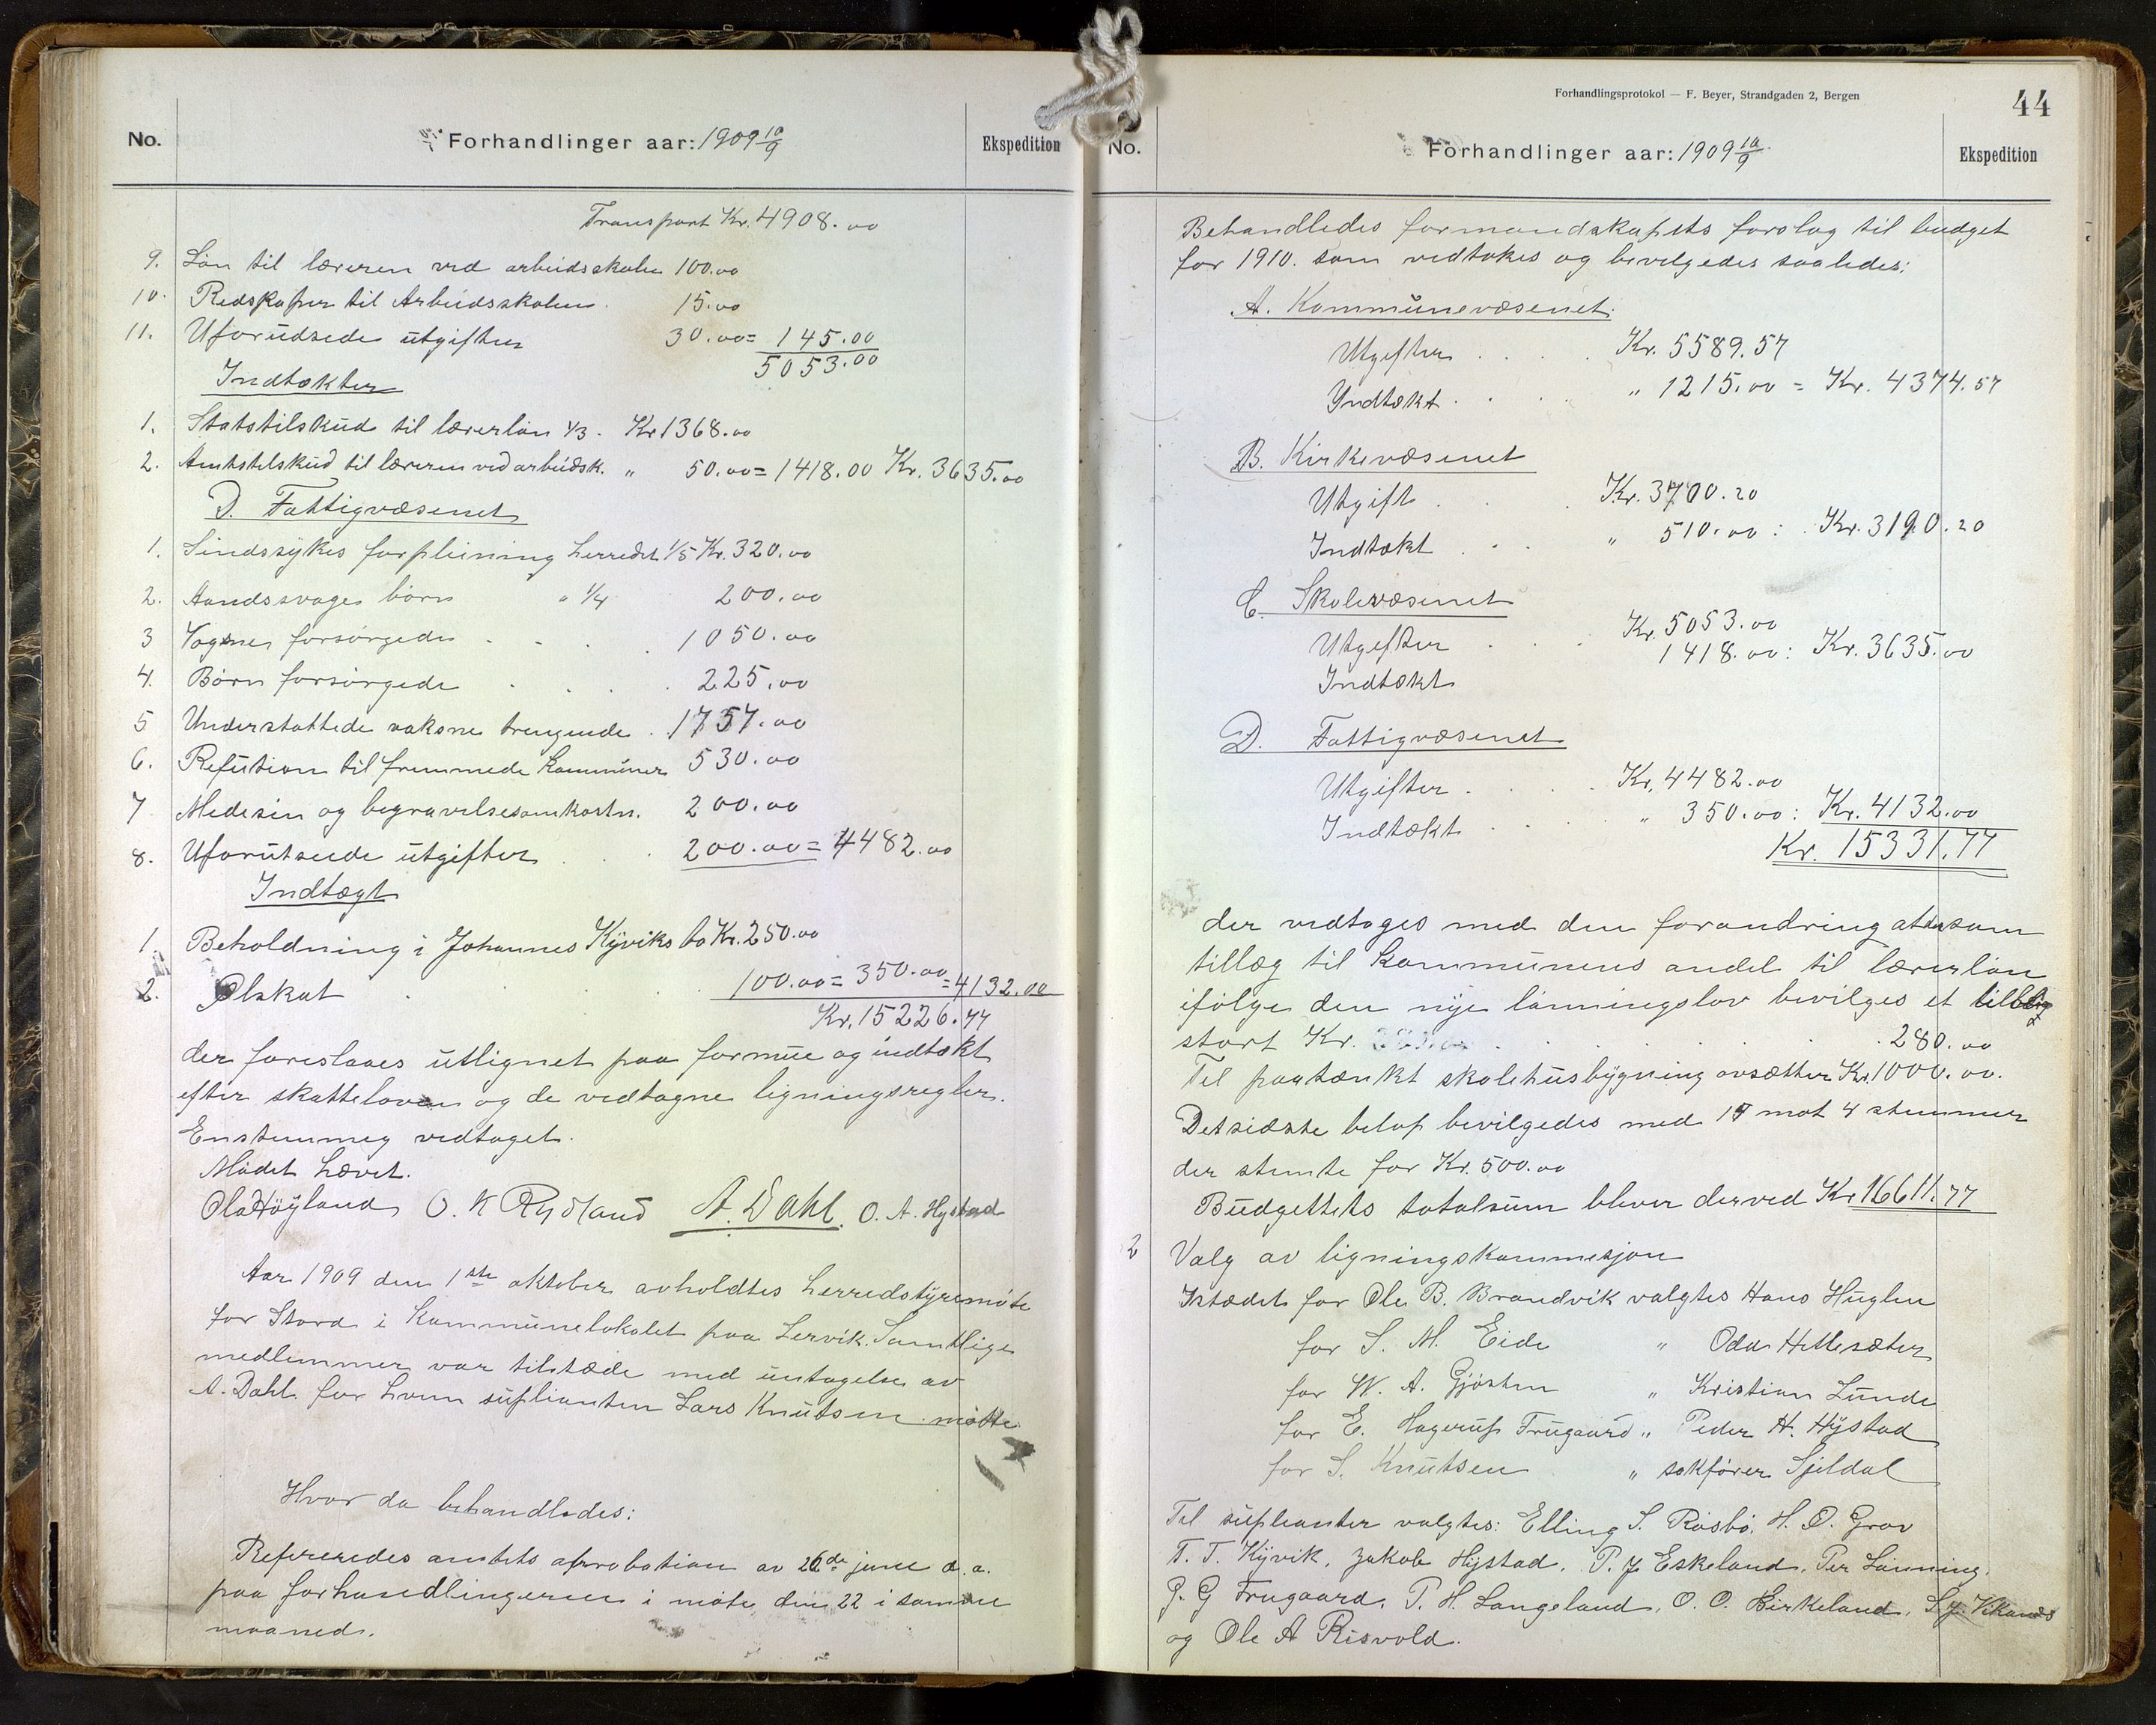 No.
Forhandlinger aar: 1909 10/9
Ekspedition
Transport Kr. 4908.00
9. Løn til læreren ved arbeidsskolen 100.00
10. Redskaper til Arbeidsskolen. 15.00
11. Uforudsede utgifter 30.00 = 145.00
5053.00
Indtækter
1. Statstilskud til lærerløn 1/3. Kr 1368.00
2. Amtstilskud til læreren ved arbeidsk. " 50.00 = 1418.00 Kr. 3635.00
D. Fattigvæsenet
1. Sindssykes forpleining herredet 1/5 Kr. 320.00
2. Aandssvage børn " 1/4 200.00
3 Vogsne forsørgede . . . 1050.00
4. Børn forsørgede . . . . 225.00
5 Understøttede voksne trengende . 1757.00
6. Refution til fremmede kommuner 530.00
7 Medesin og begravelsesomkostn. 200.00
8. Uforutseede utgifter . . 200.00 = 4482.00
Indtægt
1. Beholdning i Johannes Kyviks bo Kr. 250.00
2. Ølskat . . . . 100.00 = 350.00 = 4132.00
Kr. 15226.77
der foreslaaes utlignet paa formue og indtækt
efter skatteloven og de vedtagne ligningsregler.
Enstemmeg vedtaget.
Mødet hævet.
Ola Høyland O. K Rydland A. Dahl. O. A. Hystad
Aar 1909 den 1ste oktober avholdtes herredstyremøte
for Stord i kommunelokalet paa Lervik. Samtlige
medlemmer var tilstæde med untagelse av
A. Dahl for hvem suplianten Lars Knutsen møtte.
Hvor da behandledes:
Refereredes amtets aprobation av 26de june d. a.
paa forhandlingerne i møte den 22 i samme
maaned.
Forhandlingsprotokol — F. Beyer, Strandgaden 2, Bergen
44
No.
Forhandlinger aar: 1909 10/9.
Ekspedition
Behandledes formandskapets forslag til budget
for 1910. som vedtokes og bevilgedes saaledes:
A. Kommunevæsenet.
Utgifter . . . . Kr. 5589.57
Yndtækt . . . . " 1215.00 = Kr. 4374.57
B. Kirkevæsenet
Utgift . . . Kr. 3700.20
Indtækt . . . " 510.00 : Kr. 3190.20
C. Skolevæsenet
Utgifter . . . Kr. 5053.00
Indtækt 1418.00 : Kr. 3635.00
D. Fattigvæsenet
Utgifter . . . . Kr. 4482.00
Indtækt . . . . " 350.00 : Kr. 4132.00
Kr. 15331.77
der vedtoges med den forandring at der som
tillæg til kommunens andel til lærerløn
ifølge den nye lønningslov bevilges et tillæg
stort Kr. . . . . . . 280.00
Til paatænkt skolehusbygning avsætter Kr. 1000.00.
Det sidste beløp bevilgedes med 17 mot 4 stemmer
der stemte for Kr. 500.00
Budgettets totalsum bliver derved Kr 16611.77
2 Valg av ligningskommesjon
Istædet for Ole B. Brandvik valgtes Hans Huglen
for S. M. Eide " Odd Hettesæter
for W. A. Gjøsten " Kristian Lunde
for E. Hagerup Frugaard " Peder H. Hystad
for S. Knutsen " sakfører Sjeldal
Til suplianter valgtes: Elling S. Røsbø. H. O. Grov
T. T. Kyvik. Jakob Hystad. P. J Eskeland. Per Lønning.
J. G Frugaard. P. H. Langeland. O. O. Birkeland.
og Ole A Risvold.